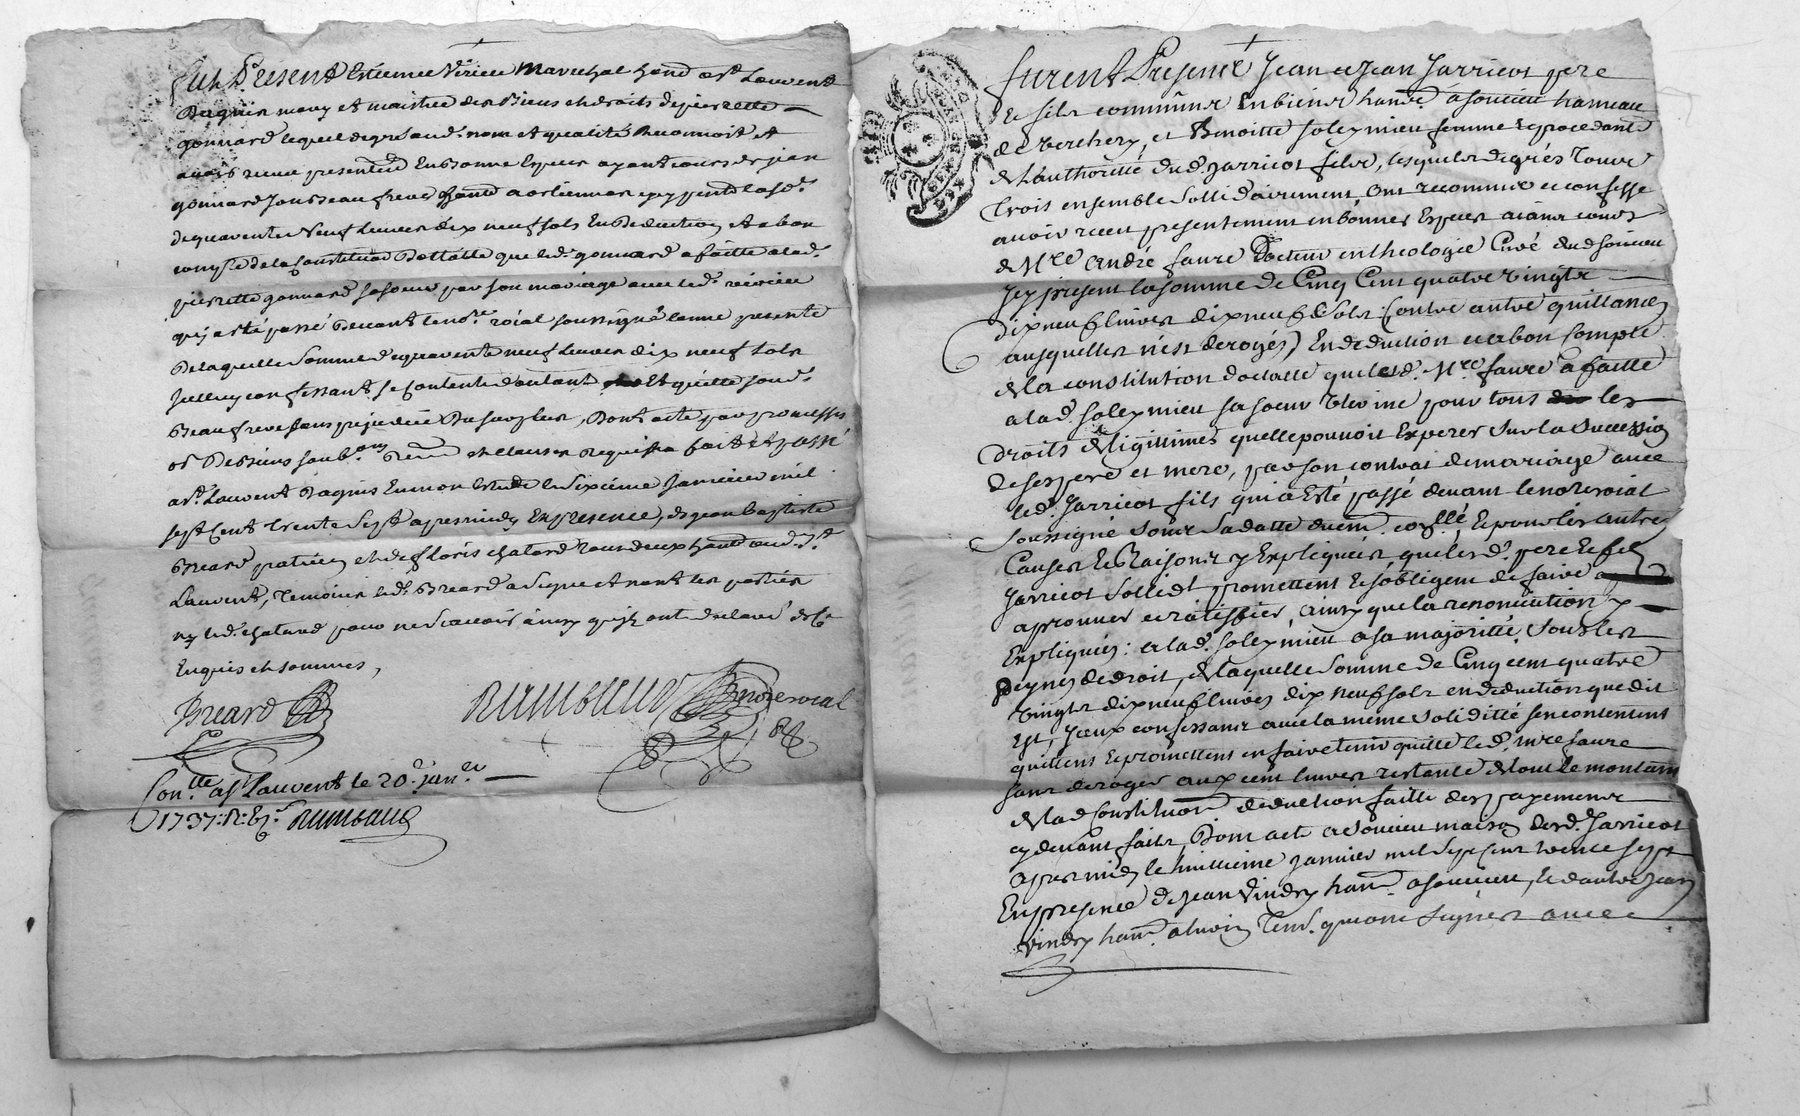 fut Present Estienne Virieu Marechal hand. a st. Laurent
Dagnin mary et maistre des Biens et droits de pierrette
gonnard lequel degré aud. nom et qualité Reconnoit et
avoir receu presentem. En Bonne Espece ayant cours de jean
gonnard son Beau frere hand. a
de quarente Neuf Livres dix neuf sols En Deduction et a bon
compte de la Constitution Dottalle que led. gonnard a faitte a lad.
pierrette gonnard sa soeur par son mariage avec led. virieu
qui a esté passé Devant le nore. roial soussigné l'annee presente
De laquelle somme de quarente neuf Livres dix neuf sols
Icelluy confessant se contente d'autant et quitte sond.
Beau frere sans prejudice Du surplus, Dont acte par promesses
et clauses Requises fait et passé
a st. Laurent Dagnis En mon Estude le Sixieme Janvier mil
sept Cent trente Sept apres midy En presence, de jean Baptiste
Breard praticien et de floris chatard tous deux hand. aud. st.
Laurent, Temoins led. Breard a signé et non les parties
ny led. chatard pour ne scavoir ainsy qu'ils ont declaré de ce
Enquis et sommes,
Breard
Rimbaud nore roial
Con.lle a st Laurent le 20e. janer
1737: R: Rimbaud
furent Presence Jean et Jean Jarricot pere
et fils communs En biens hand. a soucieu hameau
de Verchery, et Benoitte soleymieu femme et procedant
de l'authorité dud. Jarricot fils, lesquels degrés tous
trois ensemble sollidairement, ont reconnu et confessé
avoir receu presentement en bonnes Especes aiant cours
de Mre André faure Docteur en theologie Curé dud. soucieu
Icy present la somme de Cinq Cent quatre vingts
dix neuf livres dix neuf sols (contre autre quittances
ausquelles n'est derogés) En deduction et a bon compte
de la constitution dotalle que led. Mre. faure a faitte
a lad. soleymieu sa soeur uterine pour tous les
droits de legittimes quelle pouvoit Esperer sur la succession
de ses pere et mere, par son contrat de mariage avec
led. Jarricot fils qui a esté passé devant le nore roial
soussigné sous sa datte duem. conllé, et pour les autres
Causes et Raisons y Expliquées que lesd. pere et fils
Jarricot sollidt. promettent et s'obligent de faire
aprouver et ratiffier, ainsy que la renonciation y
Expliquées: a lad. soleymieu a sa majoritté, sous les
peynes de droit, de laquelle somme de Cinq cent quatre
vingts dix neuf livres dix neuf sols en deduction que dit
Est, Iceux confessant avec la même soliditté sen contentent
quittent et promettent en faire tenir quitte led. mre faure
sans deroger aux cent livres restante de tout le montant
de lad. Constitution deduction faitte des payements
cy devant faits, Dont acte a Soucieu maison desd. Jarricot
apres midy le huittieme janvier mil sept cent trente sept
En presence de Jean Vindry hand. a soucieu, et d'autre Jean
Vindry hand. Tem. qui ont signés avec